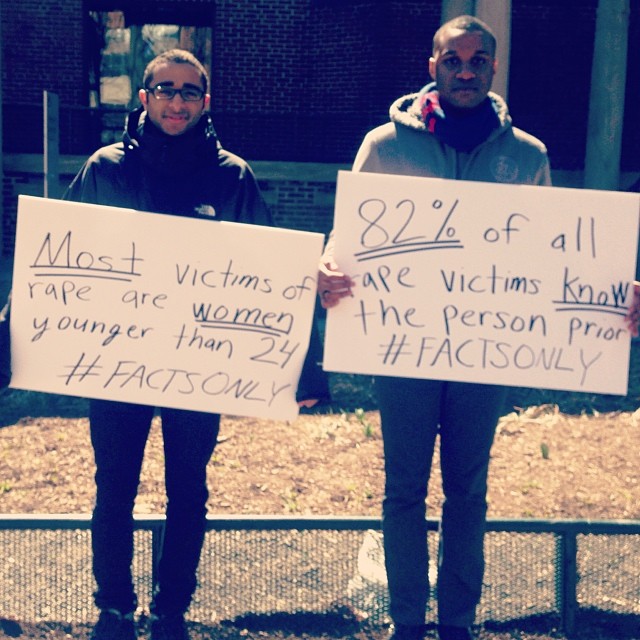 Most victims of
rape are women
younger than 24
#FACTSONLY
82% of all
rape victims know
the person prior
#FACTSONLY